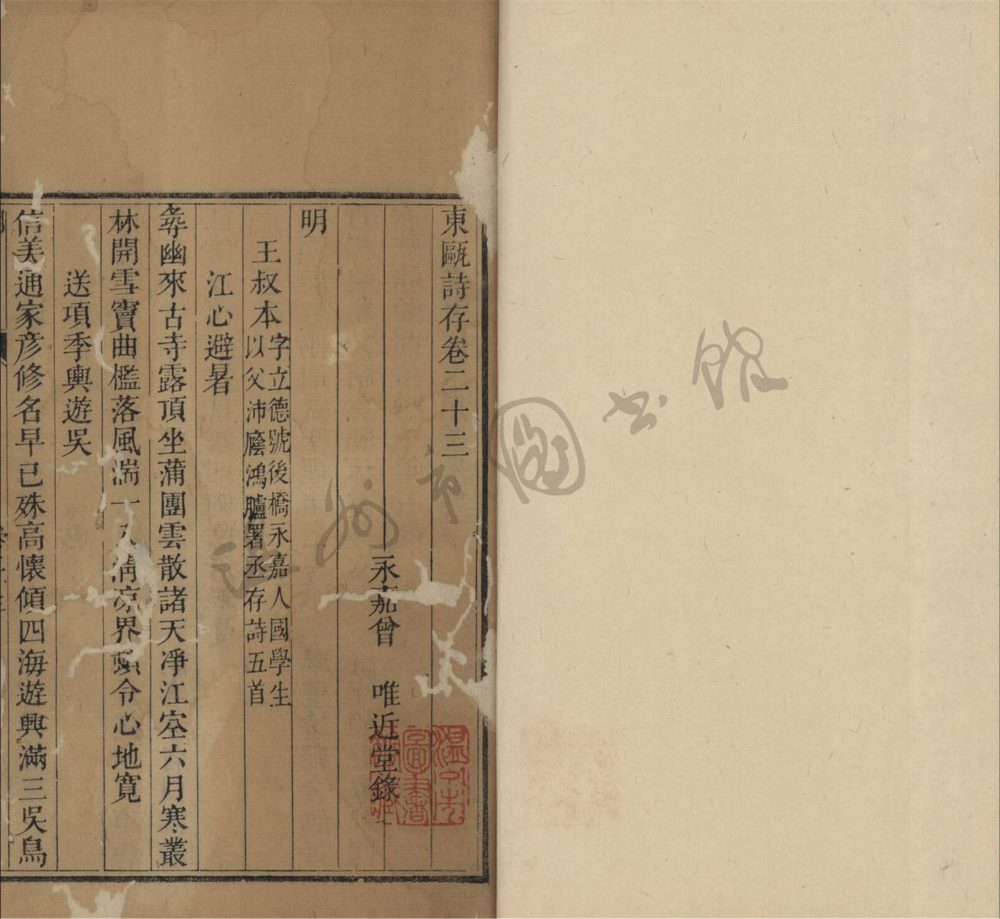 東甌詩存卷二十三
永嘉曾唯近堂錄
明
王叔本字立德號後橋永嘉人國學生
以父沛廕鴻臚署丞存詩五首
江心避暑
尋幽來古寺露頂坐蒲團雲散諸天淨江空六月寒叢
林開雪竇曲檻落風湍一入清凉界頓令心地寬
送項季輿遊吳
信美通家彥修名早已殊高懷傾四海遊興滿三吳鳥
温州市圖書館